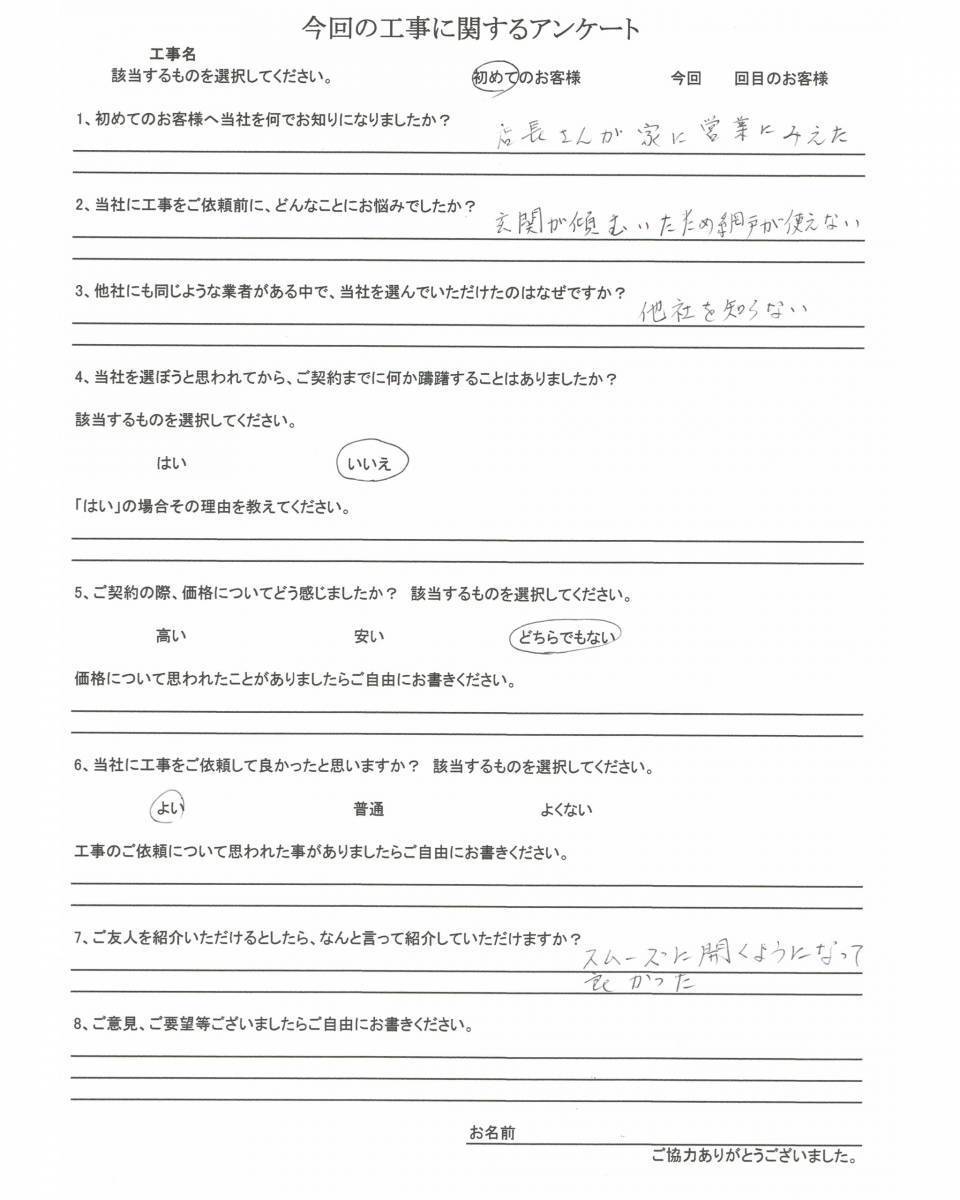 今回の工事に関するアンケート
工事名
該当するものを選択してください。 初めてのお客様 今回 回目のお客様
1、初めてのお客様へ当社を何でお知りになりましたか？
店長さんが家に営業にみえた
2、当社に工事をご依頼前に、どんなことにお悩みでしたか？
玄関が傾むいたため網戸が使えない
3、他社にも同じような業者がある中で、当社を選んでいただけたのはなぜですか？
他社を知らない
4、当社を選ぼうと思われてから、ご契約までに何か躊躇することはありましたか？
該当するものを選択してください。
はい いいえ
「はい」の場合その理由を教えてください。
5、ご契約の際、価格についてどう感じましたか？ 該当するものを選択してください。
高い 安い どちらでもない
価格について思われたことがありましたらご自由にお書きください。
6、当社に工事をご依頼して良かったと思いますか？ 該当するものを選択してください。
よい 普通 よくない
工事のご依頼について思われた事がありましたらご自由にお書きください。
7、ご友人を紹介いただけるとしたら、なんと言って紹介していただけますか？
スムーズに開くようになって
良かった
8、ご意見、ご要望等ございましたらご自由にお書きください。
お名前
ご協力ありがとうございました。